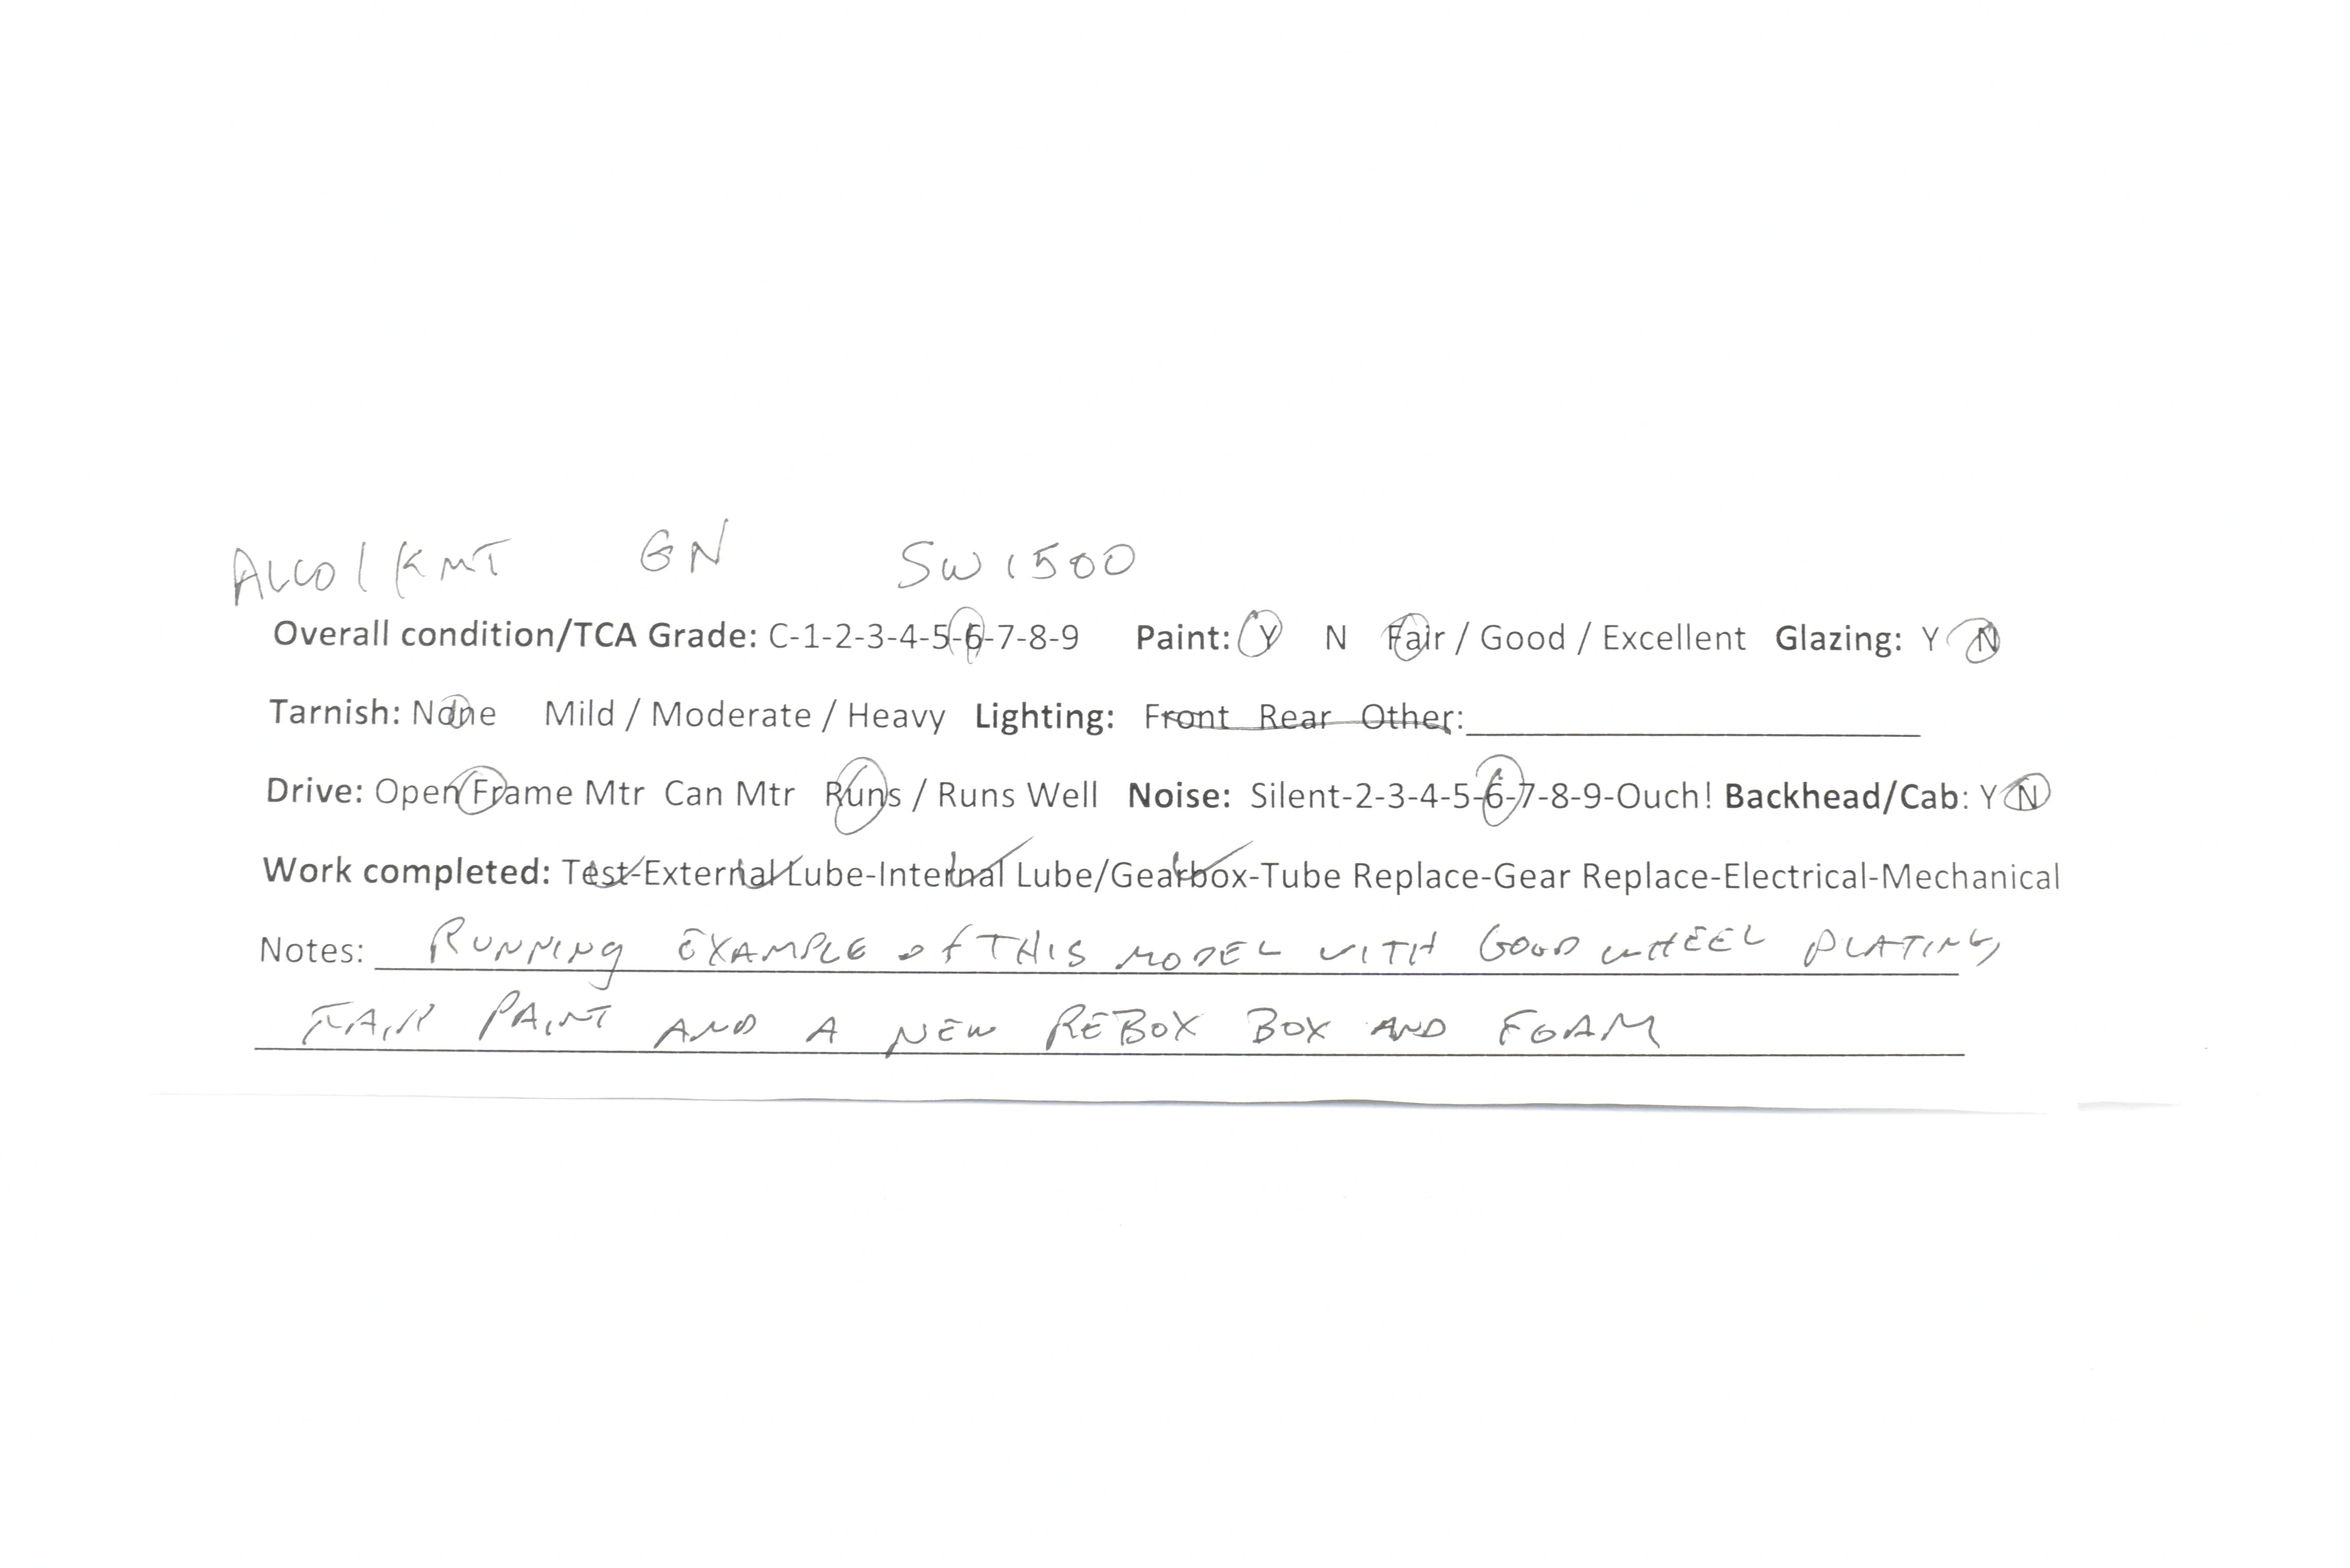 ALCO/KMT GN SW1500
Overall condition/TCA Grade: C-1-2-3-4-5-6-7-8-9 Paint: Y N Fair / Good / Excellent Glazing: Y N
Tarnish: None Mild / Moderate / Heavy Lighting: Front Rear Other:
Drive: Open Frame Mtr Can Mtr Runs / Runs Well Noise: Silent-2-3-4-5-6-7-8-9-Ouch! Backhead/Cab: Y N
Work completed: Test-External Lube-Internal Lube/Gearbox-Tube Replace-Gear Replace-Electrical-Mechanical
Notes: RUNNING EXAMPLE of THIS MODEL WITH GOOD WHEEL PLATING,
FAIR PAINT AND A NEW REBOX BOX AND FOAM